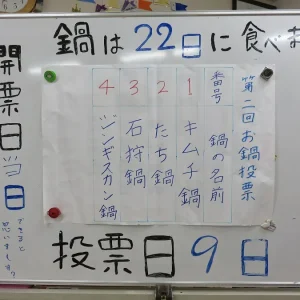 鍋は22日に食べま
第二回お鍋投票
番号 鍋の名前
1 キムチ鍋
2 たち鍋
3 石狩鍋
4 ジンギスカン鍋
投票日9日
開票日当日
できると
思いますか?